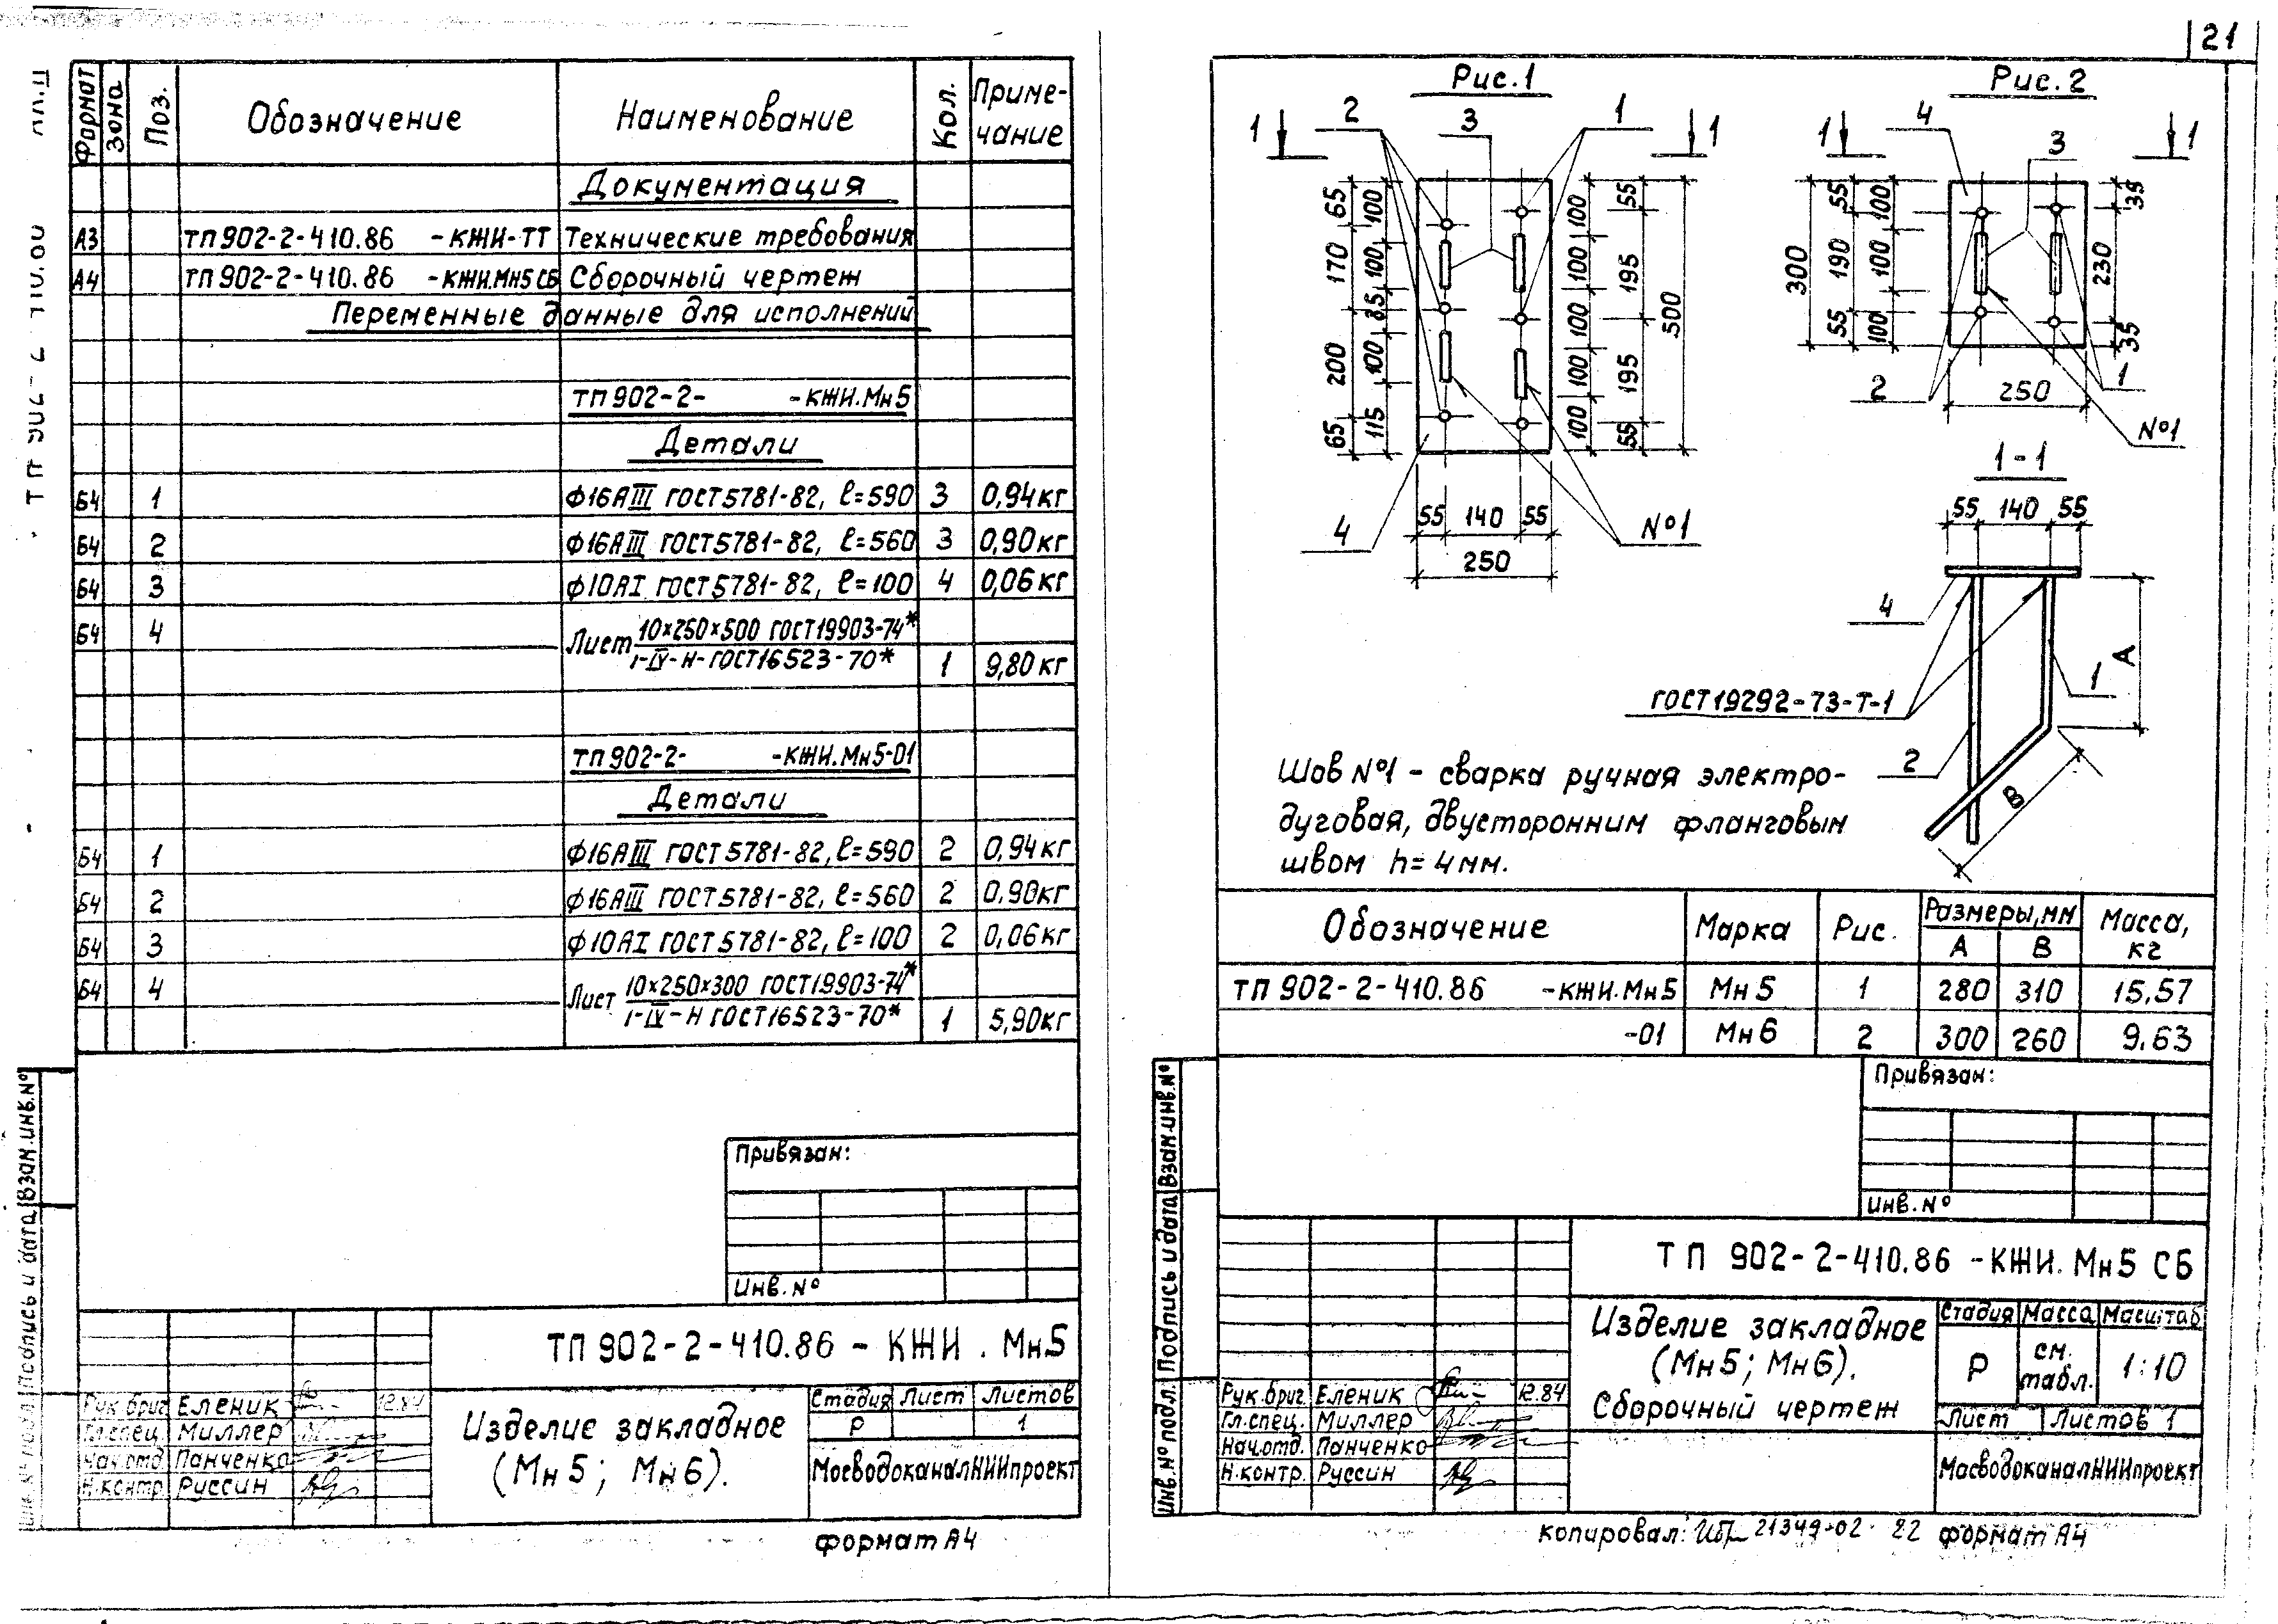 21
Формат
Зона
Поз.
Обозначение
Наименование
Кол.
Приме-
чание
Документация
А3 ТП 902-2-410.86 -КЖИ-ТТ Технические требования
А4 ТП 902-2-410.86 -КЖИ.Мн5 СБ Сборочный чертеж
Переменные данные для исполнений
ТП 902-2- -КЖИ.Мн5
Детали
Б4 1 Ф16АIII ГОСТ 5781-82, ℓ=590 3 0,94кг
Б4 2 Ф16АIII ГОСТ 5781-82, ℓ=560 3 0,90кг
Б4 3 Ф10АI ГОСТ 5781-82, ℓ=100 4 0,06кг
Б4 4 Лист 10×250×500 ГОСТ 19903-74*
I-IV-Н-ГОСТ 16523-70* 1 9,80кг
ТП 902-2- -КЖИ.Мн5-01
Детали
Б4 1 Ф16АIII ГОСТ 5781-82, ℓ=590 2 0,94кг
Б4 2 Ф16АIII ГОСТ 5781-82, ℓ=560 2 0,90кг
Б4 3 Ф10АI ГОСТ 5781-82, ℓ=100 2 0,06кг
Б4 4 Лист 10×250×300 ГОСТ 19903-74*
I-IV-Н ГОСТ 16523-70* 1 5,90кг
Привязан:
Инв.№
ТП 902-2-410.86 - КЖИ . Мн5
Рук.бриг. Еленик 12.84
Гл.спец. Миллер
Нач.отд. Панченко
Н.контр. Руссин
Изделие закладное
(Мн5; Мн6).
Стадия Лист Листов
Р 1
МосводоканалНИИпроект
формат А4
Взам.инв.№
Подпись и дата
Инв.№ подл.
Рис.1
1 2 3 1 1
65 170 200 65
100 100 85 100 115
100 100 100 100 100
55 195 195 55
500
4
55 140 55
250
№1
Рис. 2
1 4 3 1
300
55 190 55
100 100 100
35 230 35
2
250
1
№1
1-1
55 140 55
4
А
1
ГОСТ 19292-73-Т-1
2
В
Шов №1 - сварка ручная электро-
дуговая, двусторонним фланговым
швом h=4мм.
Обозначение Марка Рис. Размеры,мм Масса,
А В кг
ТП 902-2-410.86 -КЖИ.Мн5 Мн5 1 280 310 15,57
-01 Мн6 2 300 260 9.63
Привязан:
Инв.№
ТП 902-2-410.86 -КЖИ.Мн5 СБ
Изделие закладное
(Мн5; Мн6).
Сборочный чертеж
Стадия Масса Масштаб
Р см. табл. 1:10
Лист Листов 1
МосводоканалНИИпроект
Рук.бриг. Еленик 12.84
Гл.спец. Миллер
Нач.отд. Панченко
Н.контр. Руссин
Взам.инв.№
Подпись и дата
Инв.№ подл.
копировал: 21349-02 22 формат А4